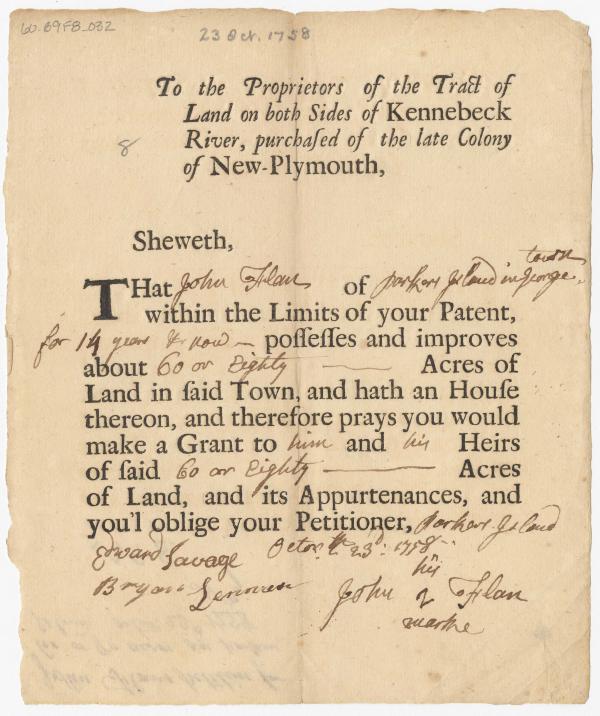 60.B9F8_032
23 Oct. 1758
8
To the Proprietors of the Tract of
Land on both Sides of Kennebeck
River, purchaſed of the late Colony
of New-Plymouth,
Sheweth,
THat John Flan of Parkers Island in George
town
within the Limits of your Patent,
for 14 years & now — poſſeſſes and improves
about 60 or Eighty — Acres of
Land in ſaid Town, and hath an Houſe
thereon, and therefore prays you would
make a Grant to him and his Heirs
of ſaid 60 or Eighty — Acres
of Land, and its Appurtenances, and
you'l oblige your Petitioner, Parkers Island
Edward Savage Octor. 23d. 1758
Bryan
his
John Flan
marke